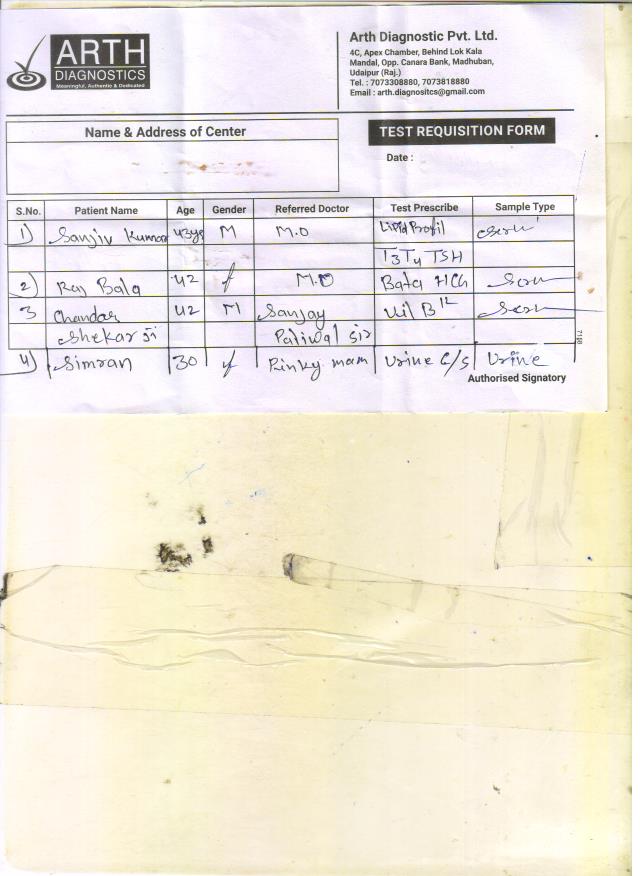 ARTH
DIAGNOSTICS
Meaningful, Authentic & Dedicated
Arth Diagnostic Pvt. Ltd.
4C, Apex Chamber, Behind Lok Kala
Mandal, Opp. Canara Bank, Madhuban,
Udaipur (Raj.)
Tel. : 7073308880, 7073818880
Email : arth.diagnositcs@gmail.com
Name & Address of Center
TEST REQUISITION FORM
Date :
S.No. Patient Name Age Gender Referred Doctor Test Prescribe Sample Type
1) Sanjiv Kumar 43ys M M.D Lipid Profil
T3 T4 TSH
2) Raj Bala 42 f M.D Bata HCG
3 Chandar 42 M Sanjay Vit B12
Shekar Ji Paliwal sir
4) Simran 30 f Pinky mam Urine C/S Urine
7198
Authorised Signatory